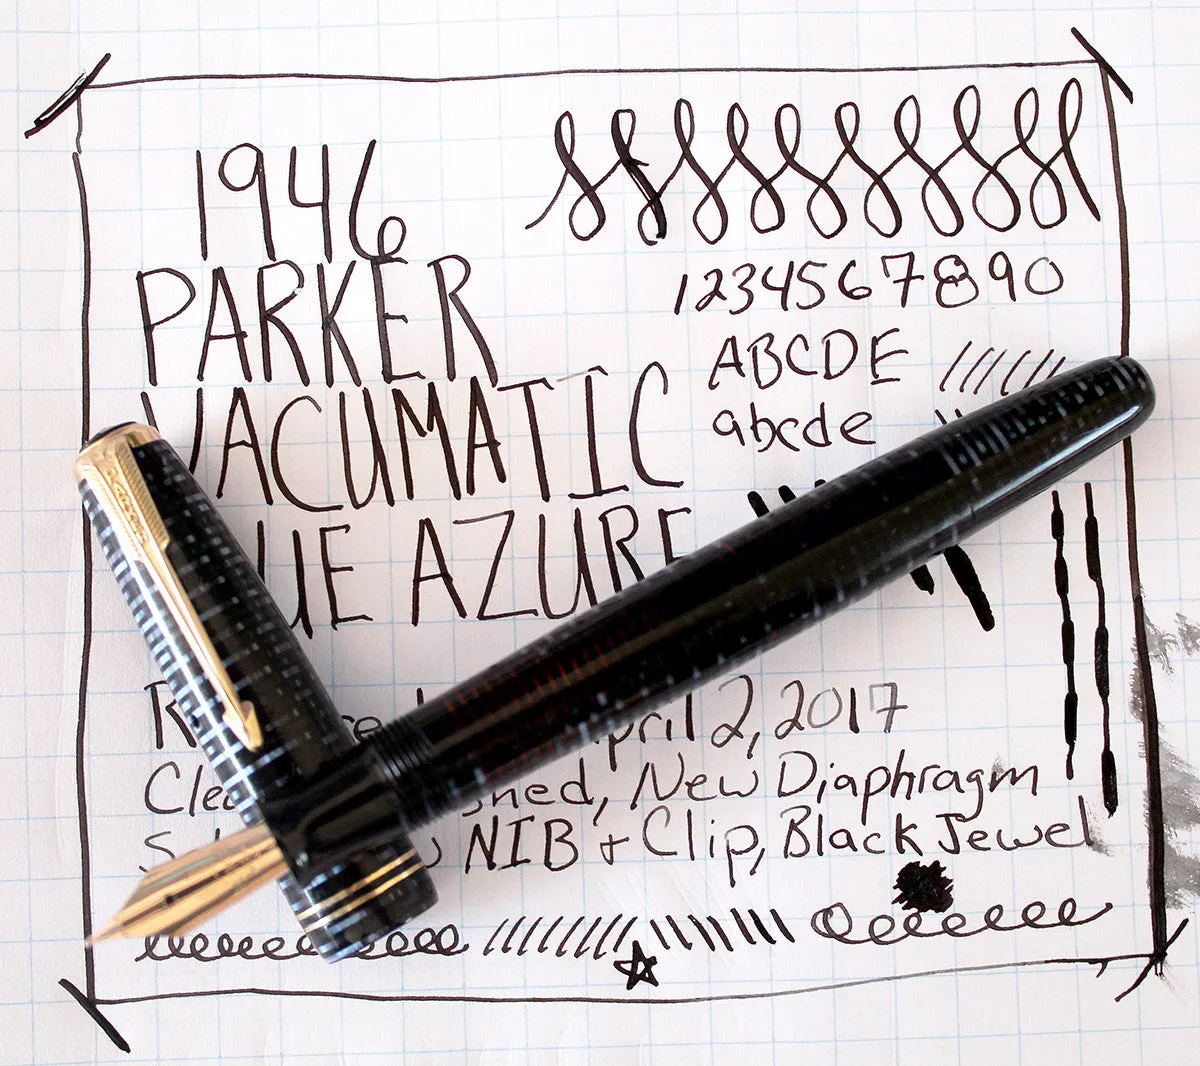 1946
PARKER
VACUMATIC
AZURE
1234567890
ABCDE
abcde
April 2, 2017
New Diaphragm
NIB + Clip, Black Jewel